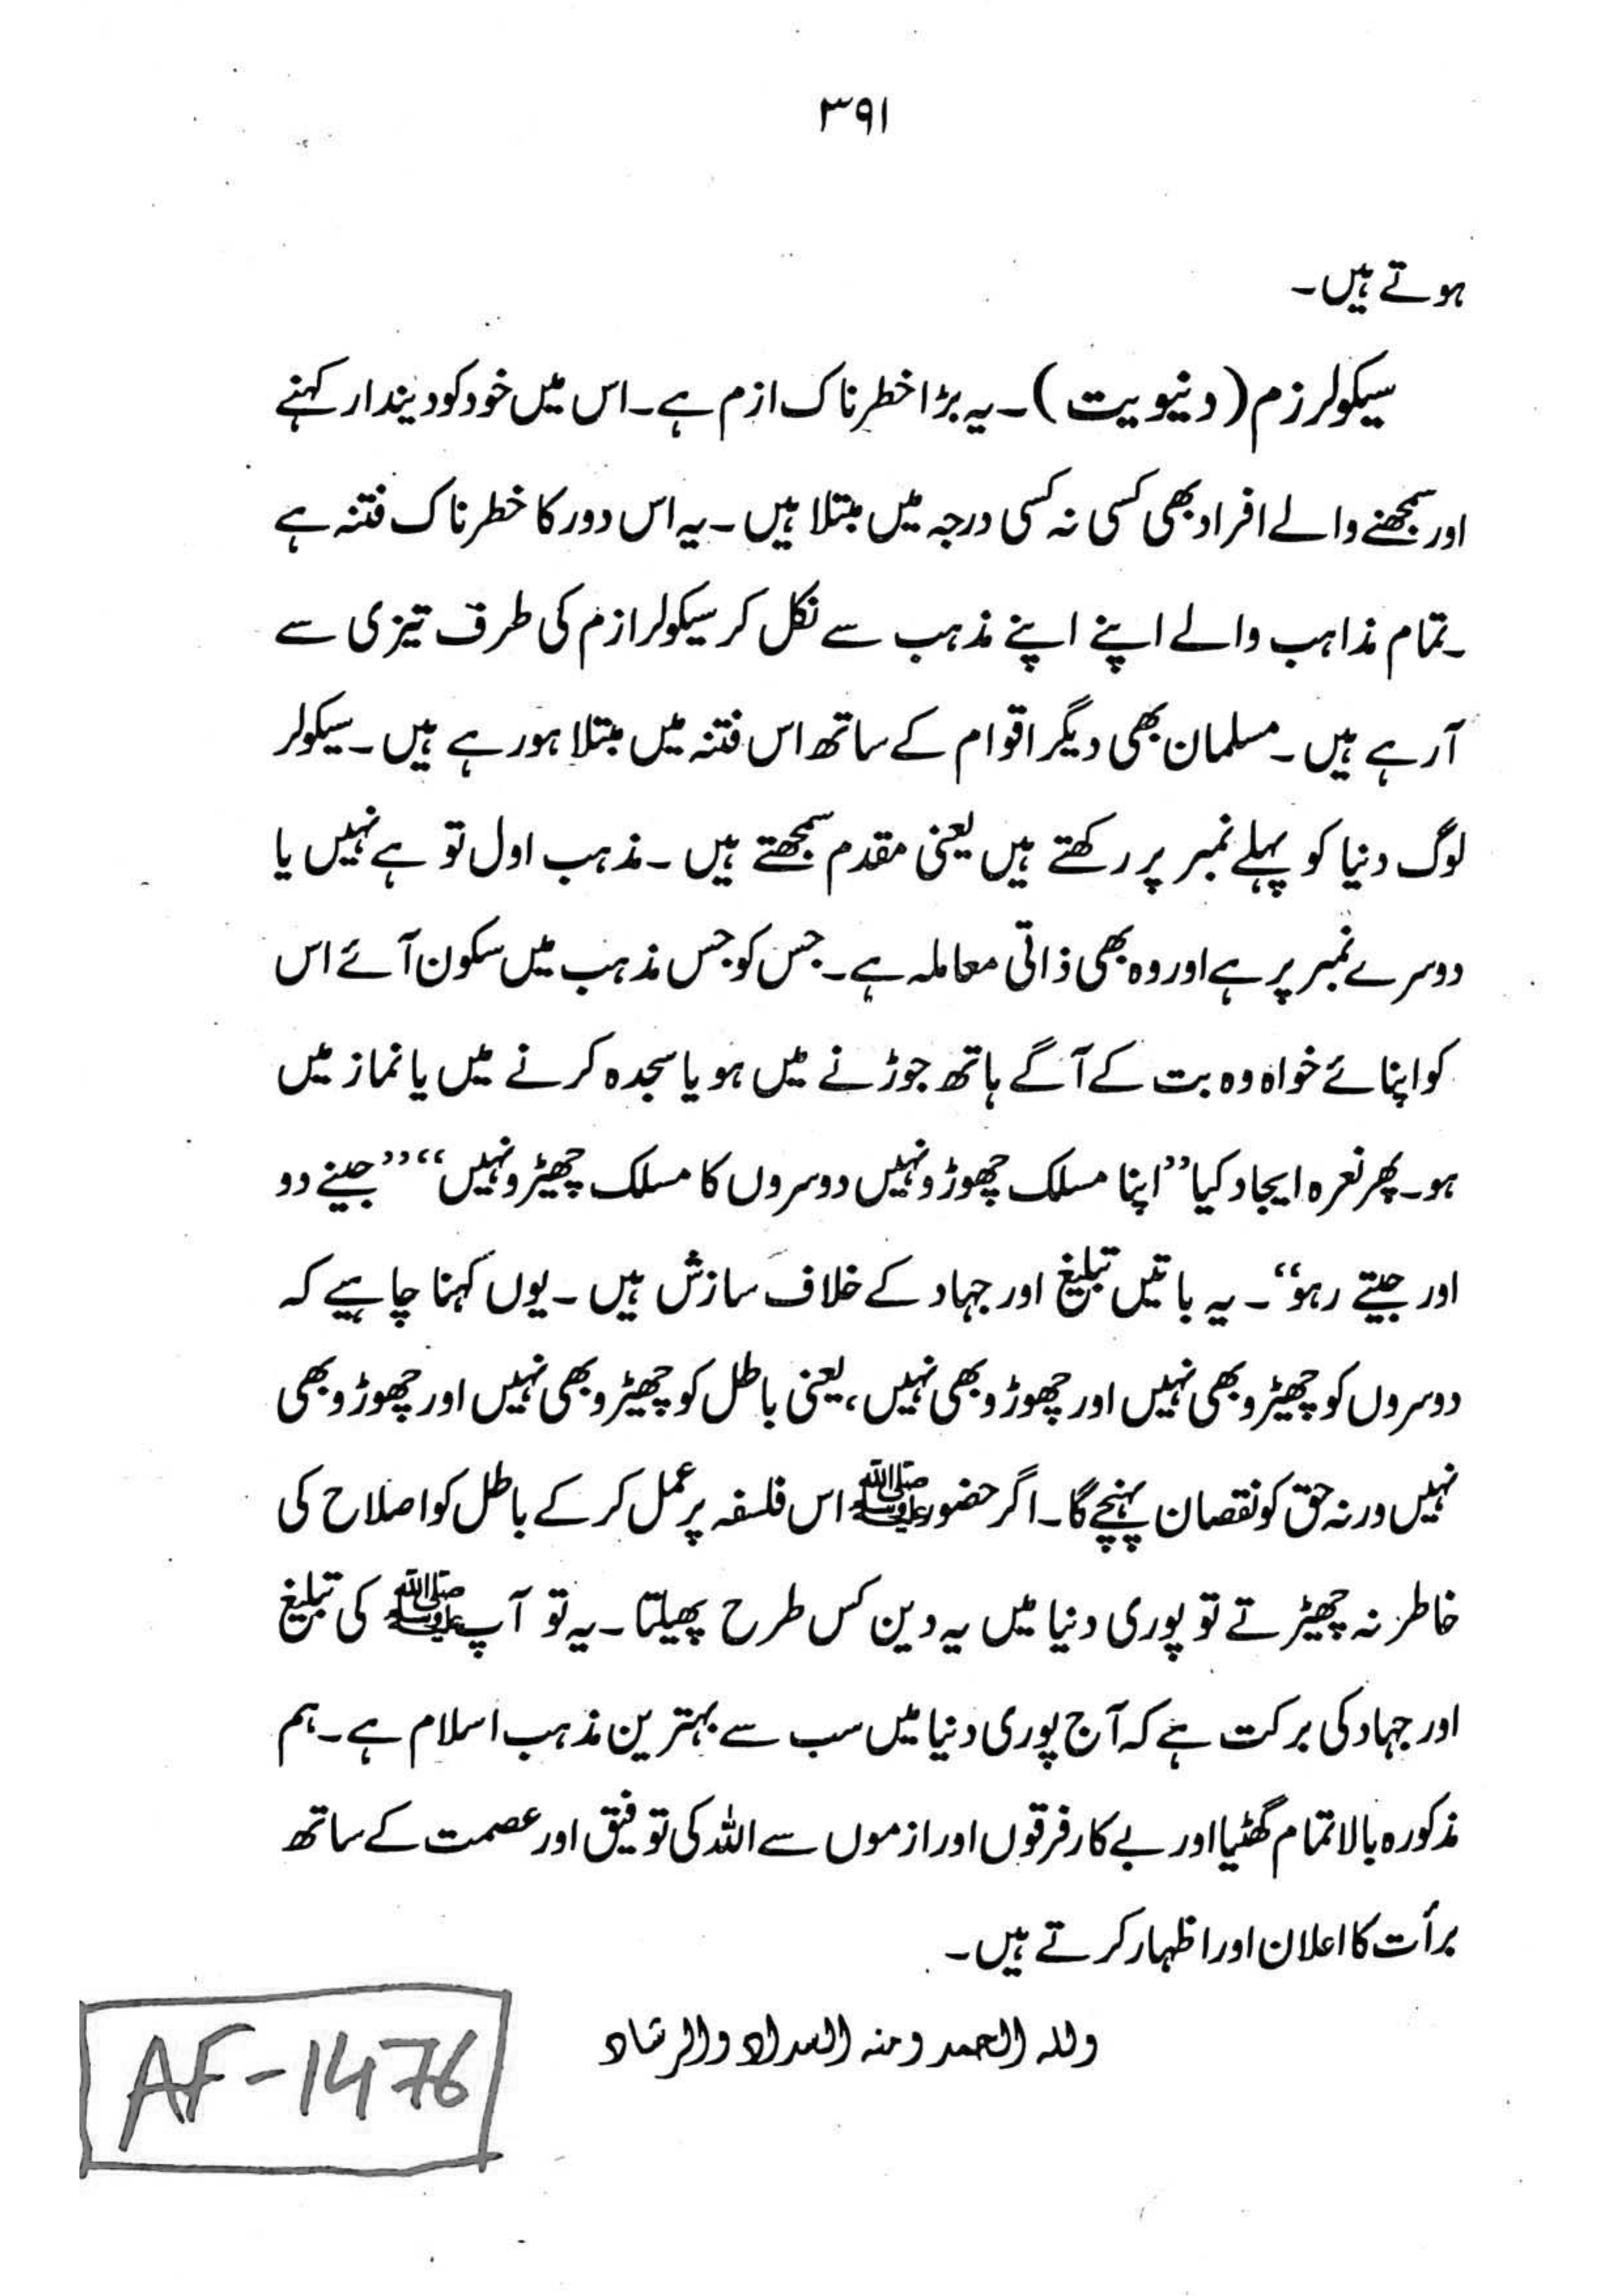 ۳۹۱
ہوتے ہیں۔
سیکولرزم (دنیویت)۔ یہ بڑا خطرناک ازم ہے۔ اس میں خود کو دیندار کہنے
اور سمجھنے والے افراد بھی کسی نہ کسی درجہ میں مبتلا ہیں۔ یہ اس دور کا خطرناک فتنہ ہے
۔ تمام مذاہب والے اپنے اپنے مذہب سے نکل کر سیکولرازم کی طرف تیزی سے
آرہے ہیں۔ مسلمان بھی دیگر اقوام کے ساتھ اس فتنہ میں مبتلا ہورہے ہیں۔ سیکولر
لوگ دنیا کو پہلے نمبر پر رکھتے ہیں یعنی مقدم سمجھتے ہیں۔ مذہب اول تو ہے نہیں یا
دوسرے نمبر پر ہے اور وہ بھی ذاتی معاملہ ہے۔ جس کو جس مذہب میں سکون آئے اس
کو اپنائے خواہ وہ بت کے آگے ہاتھ جوڑنے میں ہو یا سجدہ کرنے میں یا نماز میں
ہو۔ پھر نعرہ ایجاد کیا ”اپنا مسلک چھوڑو نہیں دوسروں کا مسلک چھیڑو نہیں“ ”جینے دو
اور جیتے رہو“۔ یہ باتیں تبلیغ اور جہاد کے خلاف سازش ہیں۔ یوں کہنا چاہیے کہ
دوسروں کو چھیڑو بھی نہیں اور چھوڑو بھی نہیں، یعنی باطل کو چھیڑو بھی نہیں اور چھوڑو بھی
نہیں ورنہ حق کو نقصان پہنچے گا۔ اگر حضور ﷺ اس فلسفہ پر عمل کرکے باطل کو اصلاح کی
خاطر نہ چھیڑتے تو پوری دنیا میں یہ دین کس طرح پھیلتا۔ یہ تو آپ ﷺ کی تبلیغ
اور جہاد کی برکت ہے کہ آج پوری دنیا میں سب سے بہترین مذہب اسلام ہے۔ ہم
مذکورہ بالا تمام گھٹیا اور بے کار فرقوں اور ازموں سے اللہ کی توفیق اور عصمت کے ساتھ
برأت کا اعلان اور اظہار کرتے ہیں۔
وللہ الحمد ومنہ السداد والرشاد
AF-1476